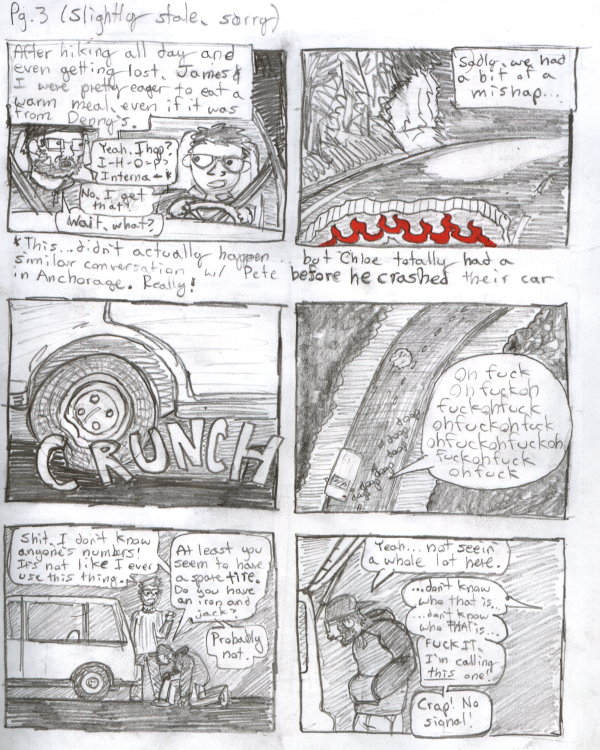 Pg. 3 (Slightly stale, sorry)
After hiking all day and
even getting lost, James &
I were pretty eager to eat a
warm meal, even if it was
from Denny's.
Yeah, Ihop?
I-H-O-P?
Interna-*
No, I get
that!
Wait, what?
Sadly, we had
a bit of a
mishap...
*This...didn't actually happen... but Chloe totally had a
similar conversation w/ Pete before he crashed their car
in Anchorage. Really!
CRUNCH
Oh fuck
Oh fuck oh
fuck oh fuck
oh fuck oh fuck
oh fuck oh fuck oh
fuck oh fuck
oh fuck
Shit. I don't know
anyone's numbers!
It's not like I ever
use this thing.
At least you
seem to have
a spare tire.
Do you have
an iron and
jack?
Probably
not.
Yeah... not seein'
a whole lot here.
...don't know
who that is...
...don't know
who THAT is...
FUCK IT.
I'm calling
this one!
Crap! No
signal!